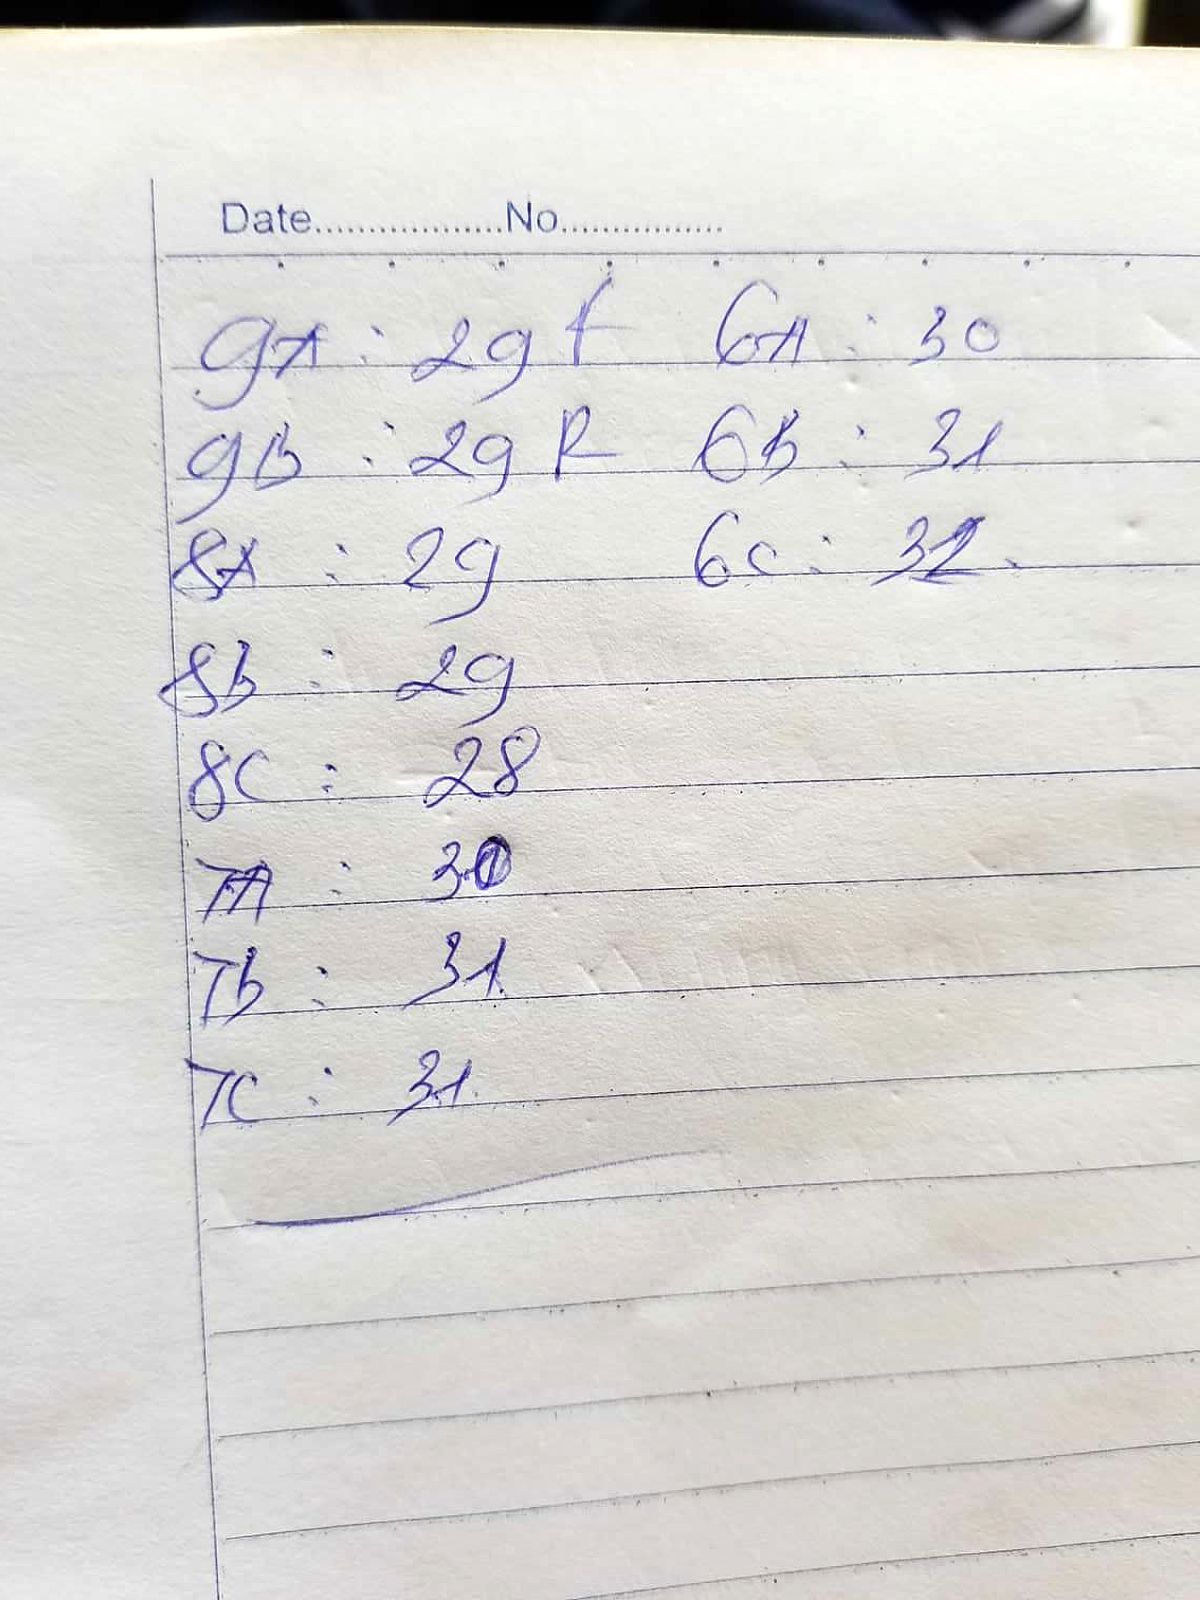 Date..................No................
9A : 29 f 6A : 30
9B : 29 R 6B : 31
8A : 29 6C : 32.
8B : 29
8C : 28
7A : 30
7B : 31
7C : 31